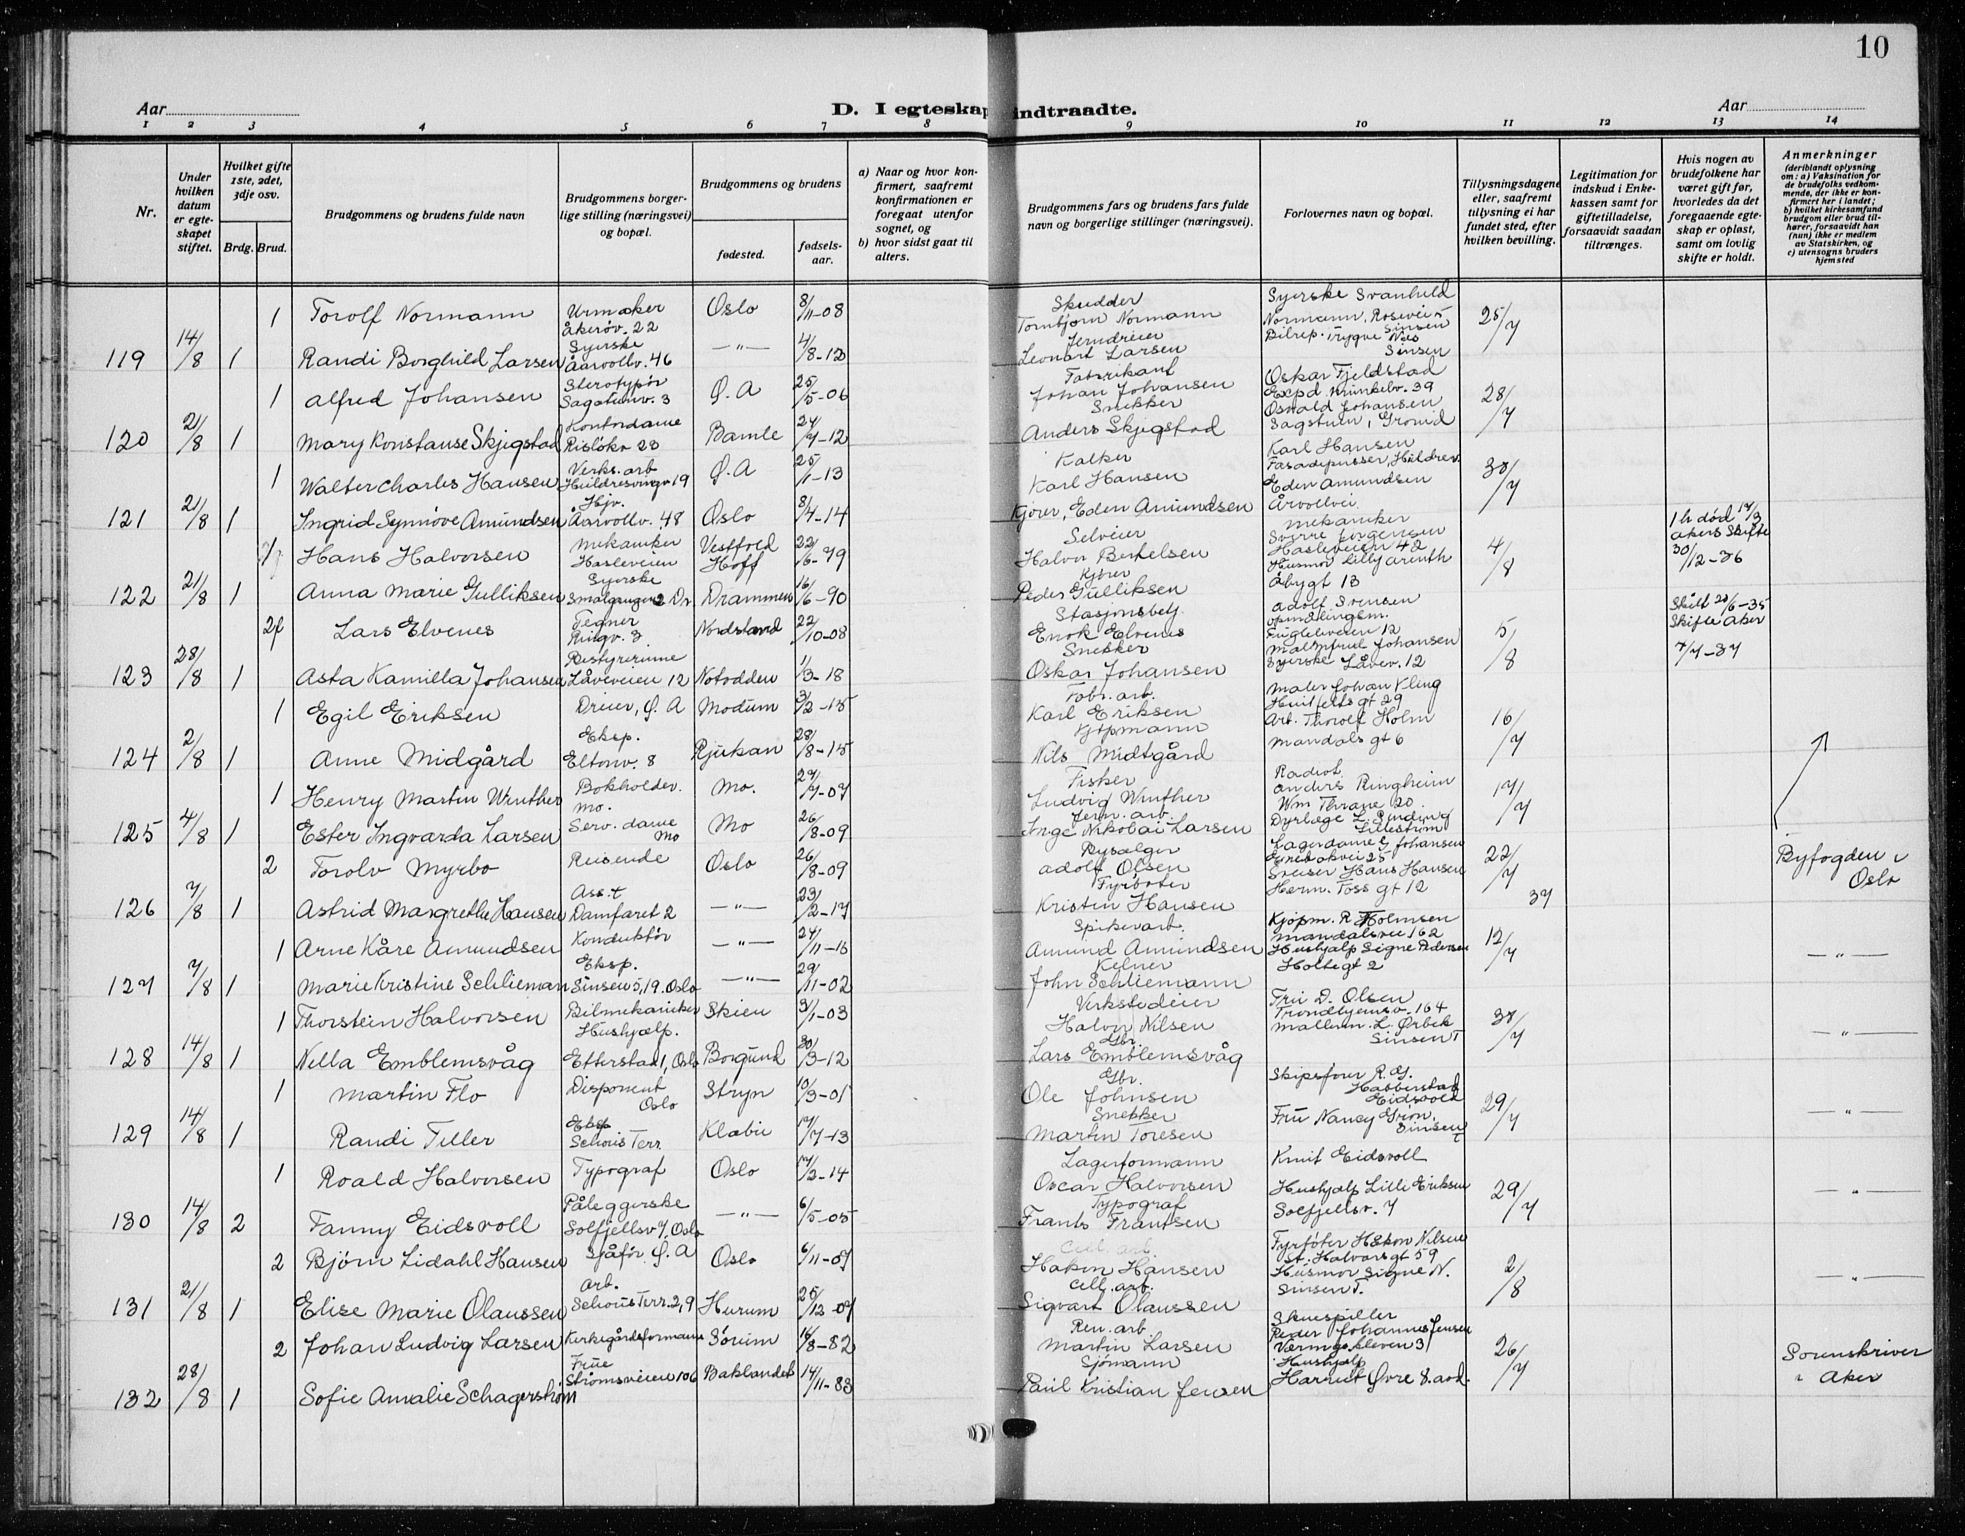 10
Aar
D. I egteskap indtraadte.
Aar
1 2 3 4 5 6 7 8 9 10 11 12 13 14
Nr.
Under hvilken datum er egteskapet stiftet.
Hvilket gifte 1ste, 2det, 3dje osv.
Brdg. Brud.
Brudgommens og brudens fulde navn
Brudgommens borgerlige stilling (næringsvei) og bopæl.
Brudgommens og brudens
fødested.
fødselsaar.
a) Naar og hvor konfirmert, saafremt konfirmationen er foregaat utenfor sognet, og
b) hvor sidst gaat til alters.
Brudgommens fars og brudens fars fulde navn og borgerlige stillinger (næringsvei).
Forlovernes navn og bopæl.
Tillysningsdagene eller, saafremt tillysning ei har fundet sted, efter hvilken bevilling.
Legitimation for indskud i Enkekassen samt for giftetilladelse, forsaavidt saadan tiltrænges.
Hvis nogen av brudefolkene har været gift før, hvorledes da det foregaaende egteskap er opløst, samt om lovlig skifte er holdt.
Anmerkninger (deriblandt oplysning om: a) Vaksination for de brudefolks vedkommende, der ikke er konfirmert her i landet; b) hvilket kirkesamfund brudgom eller brud tilhører, forsaavidt han (hun) ikke er medlem av Statskirken, og c) utensogns bruders hjemsted
1 Torolf Normann Urmaker Åkerøv. 22 Oslo 8/11-08 Skredder Tornbjørn Normann Syerske Svanhild Normann, Rosevei 5 Sinsen 25/7
119 14/8 1 Randi Borghild Larsen Syerske Aarvollv. 46 -"- 4/8-12 Jerndreier Leonart Larsen Bilrep. Trygve Næs Sinsen
1 Alfred Johansen Sterotypør Sagstuv. 3 Ø. A 25/5-06 Fabrikant Johan Johansen Oskar Fjeldstad Exp.d. Krinkelv. 39 28/7
120 21/8 1 Mary Konstanse Skjegstad Kontordame Risløkv 23 Bamle 24/7-12 Snekker Anders Skjegstad Osvald Johansen Sagstuen, Grorud
1 Walter Charles Hansen Verks. arb Huldresvingv 19 Ø. A 25/1-13 Kalker Karl Hansen Karl Hansen Fasadepusser, Huldrev. 30/7
121 21/8 1 Ingrid Synnøve Amundsen Hjv. Aarvollv. 48 Oslo 8/4-14 Kjører, Eden Amundsen Eden Amundsen Årvollvei
Hans Halvorsen Mekaniker Hasleveien Vestfold Hoff 22/6-79 Selveier Halvor Bertelsen Mekaniker Sverre Jørgensen Hasleveien 42 4/8 1 h død 17/3 Akers Skifte 30/12-36
122 21/8 1 Anna Marie Gulliksen Syerske Drammen 16/6-90 Kjører Peder Gulliksen Husmor Lilly Arenth Åbygt 13
2f Lars Elvenes Tegner Ringv. 3 Nordstrand 22/10-08 Stasjonsbetj. Enok Elvenes Adolf Svensen Fugleleveien 12 5/8 Skilt 20/6-35 Skifte Aker 7/7-37
123 28/8 1 Asta Kamilla Johansen Bestyrerinne Låveveien 12 Notodden 1/3-18 Snekker Oskar Johansen Malmfrid Johansen Syerske Låvev. 12
1 Egil Eriksen Dreier, Ø. A Modum 3/2-15 Fabr. arb. Karl Eriksen Maler Johan Kling Huitfelts gt 29 16/7
124 2/8 1 Anne Midgård Eksp. Eltonv. 8 Rjukan 28/8-15 Kjøpmann Nils Midtgård Arb. Thorolf Holm Mandals gt 6
1 Henry Martin Winther Bokholder. Mo. Mo. 27/7-07 Fisker Ludvig Winther Radiot. Anders Ringheim Wm Thrane 20 17/7
125 4/8 1 Ester Ingvarda Larsen Serv. dame Mo Mo 26/8-09 Jern. arb. Inge Nikolai Larsen Dyrlæge L. Sinding Lillestrøm
2 Torolv Myrbo Reisende Oslo 26/8-09 Adolf Olsen Lagerdame G Johansen 22/7 Byfogden i Oslo
126 7/8 1 Astrid Margrethe Hansen Ass.t Damfaret 2 -"- 23/2-17 Fyrbøter Kristin Hansen Hans Hansen Herm. Foss gt 12 37
1 Arne Kåre Amundsen Konduktør -"- 24/11-16 Spikerarb. Amund Amundsen Kjøpm. R Holmsen Mandalsvei 162 12/7 -"-
127 7/8 1 Marie Kristine Schlieman Eksp. Sinsen 5, 19. Oslo -"- 29/11-02 Kelner John Schliemann Hushjælp Signe Pedersen Holtegt 2
1 Thorstein Halvorsen Bilmekaniker Skien 3/1-03 Verkstedeier Halvor Nilsen Fru D. Olsen Trondhjemsv. 164 30/7 -"-
128 14/8 1 Nella Emblemsvåg Hushjælp. Etterstad 1, Oslo Borgund 30/3-12 Gbr. Lars Emblemsvåg L. Ørbek Sinsen T
1 Martin Flo Disponent Oslo Stryn 10/3-01 Gbr. Ole Johnsen Skipsfører R. G. Habberstad Eidsvold 29/7 -"-
129 14/8 1 Randi Tiller Eksp Schous Terr Klæbu 17/7-13 Snekker Martin Toresen Fru Nancy Grøn. Sinsen T
1 Roald Halvorsen Typograf Oslo 17/2-14 Lagerformann Oscar Halvorsen Knut Eidsvoll 29/7 -"-
130 14/8 2 Fanny Eidsvoll Påleggerske Solfjellsv 7, Oslo -"- 6/5-05 Typograf Frants Frantsen Hushjælp Lilli Eriksen Solfjellsv. 7
2 Bjørn Lidahl Hansen Sjåfør Ø. A Oslo 6/11-07 Cell. arb. Håkon Hansen Fyrbøter Håkon Nilsen St. Halvards gt 59 2/8 -"-
131 21/8 1 Elise Marie Olaussen Arb. Schous Terr. 2, 9 Hurum 25/12-07 Cell. arb. Sigvart Olaussen Husmor Signe N. Sinsen T.
2 Johan Ludvig Larsen Kirkegårdsformann Sørum 16/8-82 Ren. arb. Martin Larsen Skuespiller Peder Johannes Jensen Væringskleven 3 26/7 Sorenskriver i Aker
132 28/8 1 Sofie Amalie Schagerstrøm Frue Strømsveien 106 Baklandet 14/11-83 Sjømann Paul Kristian Jensen Hushjelp Harriet Øvre S. aad.